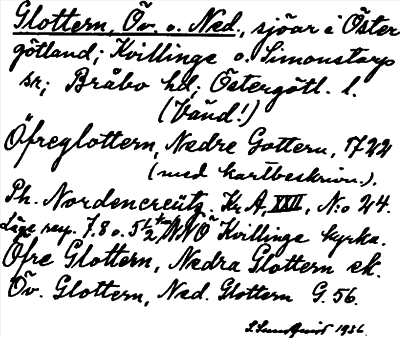 Glottern, Öv. o. Ned., sjöar i Öster
götland; Kvillinge o. Simonstorps
sn; Bråbo hd; Östergötl. l.
(Vänd!)
Öfreglottern, Nedre Gottern, 1722
(med kartbeskrivn.).
Ph. Nordencreütz. Kr A, XXII, N:o 24.
Läge resp. 7.8 o. 5 1/2 km NNÖ Kvillinge kyrka.
Öfre Glottern, Nedra Glottern ek.
Öv. Glottern, Ned. Glottern G. 56.
1936.